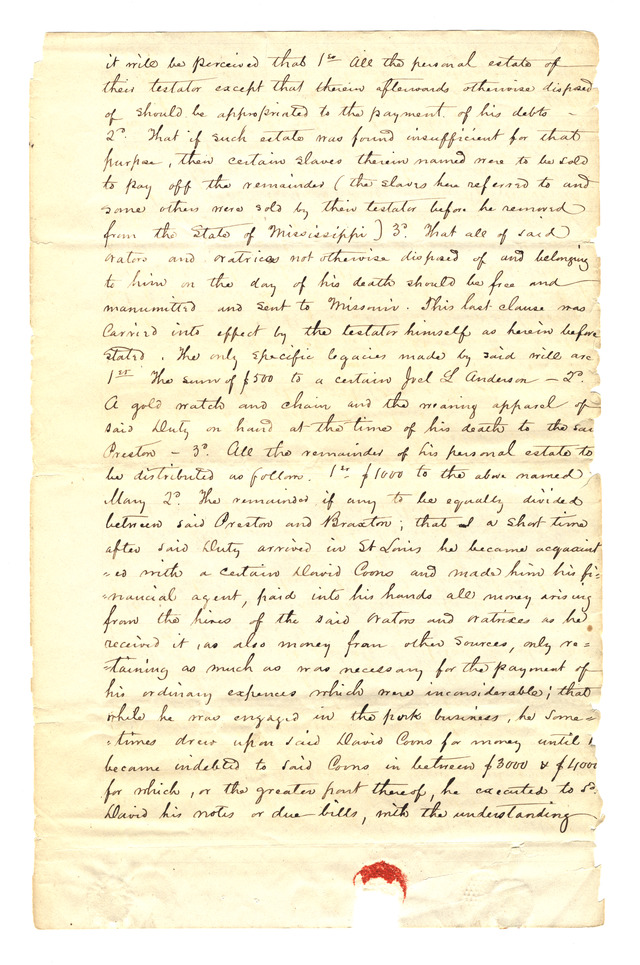 it will be perceived that 1st All the personal estate of
their testator except that therein afterwards otherwise disposed
of should be appropriated to the payment of his debts –
2d. That if such estate was found insufficient for that
purpose, then certain slaves therein named were to be sold
to pay off the remainder (the slaves here referred to and
some others were sold by their testator before he removed
from the State of Mississippi) 3d. That all of said
orators and oratrices not otherwise disposed of and belonging
to him on the day of his death should be free and
manumitted and sent to Missouri. This last clause was
Carried into effect by the testator himself as herein before
stated. The only specific legacies made by said will are
1st The sum of $500 to a certain Joel L Anderson – 2d.
A gold watch and chain and the wearing apparel of
said Duty on hand at the time of his death to the sai
Preston – 3d. All the remainder of his personal estate to
be distributed as follow. 1st $1000 to the above named
Mary 2d. The remainder if any to be equally divided
between said Preston and Braxton; that a short time
after said Duty arrived in St Louis he became acquaint
=ed with a certain David Coons and made him his fi=
=nancial agent, paid into his hands all money arising
from the hires of the said orators and oratrices as he
received it, as also money from other sources, only re=
=taining as much as was necessary for the payment of
his ordinary expences which were inconsiderable; that
while he was engaged in the pork business, he some=
=times drew upon said David Coons for money until
became indebted to said Coons in between $3000 & $4000
for which, or the greater part thereof, he executed to sd.
David his notes or due bills, with the understanding